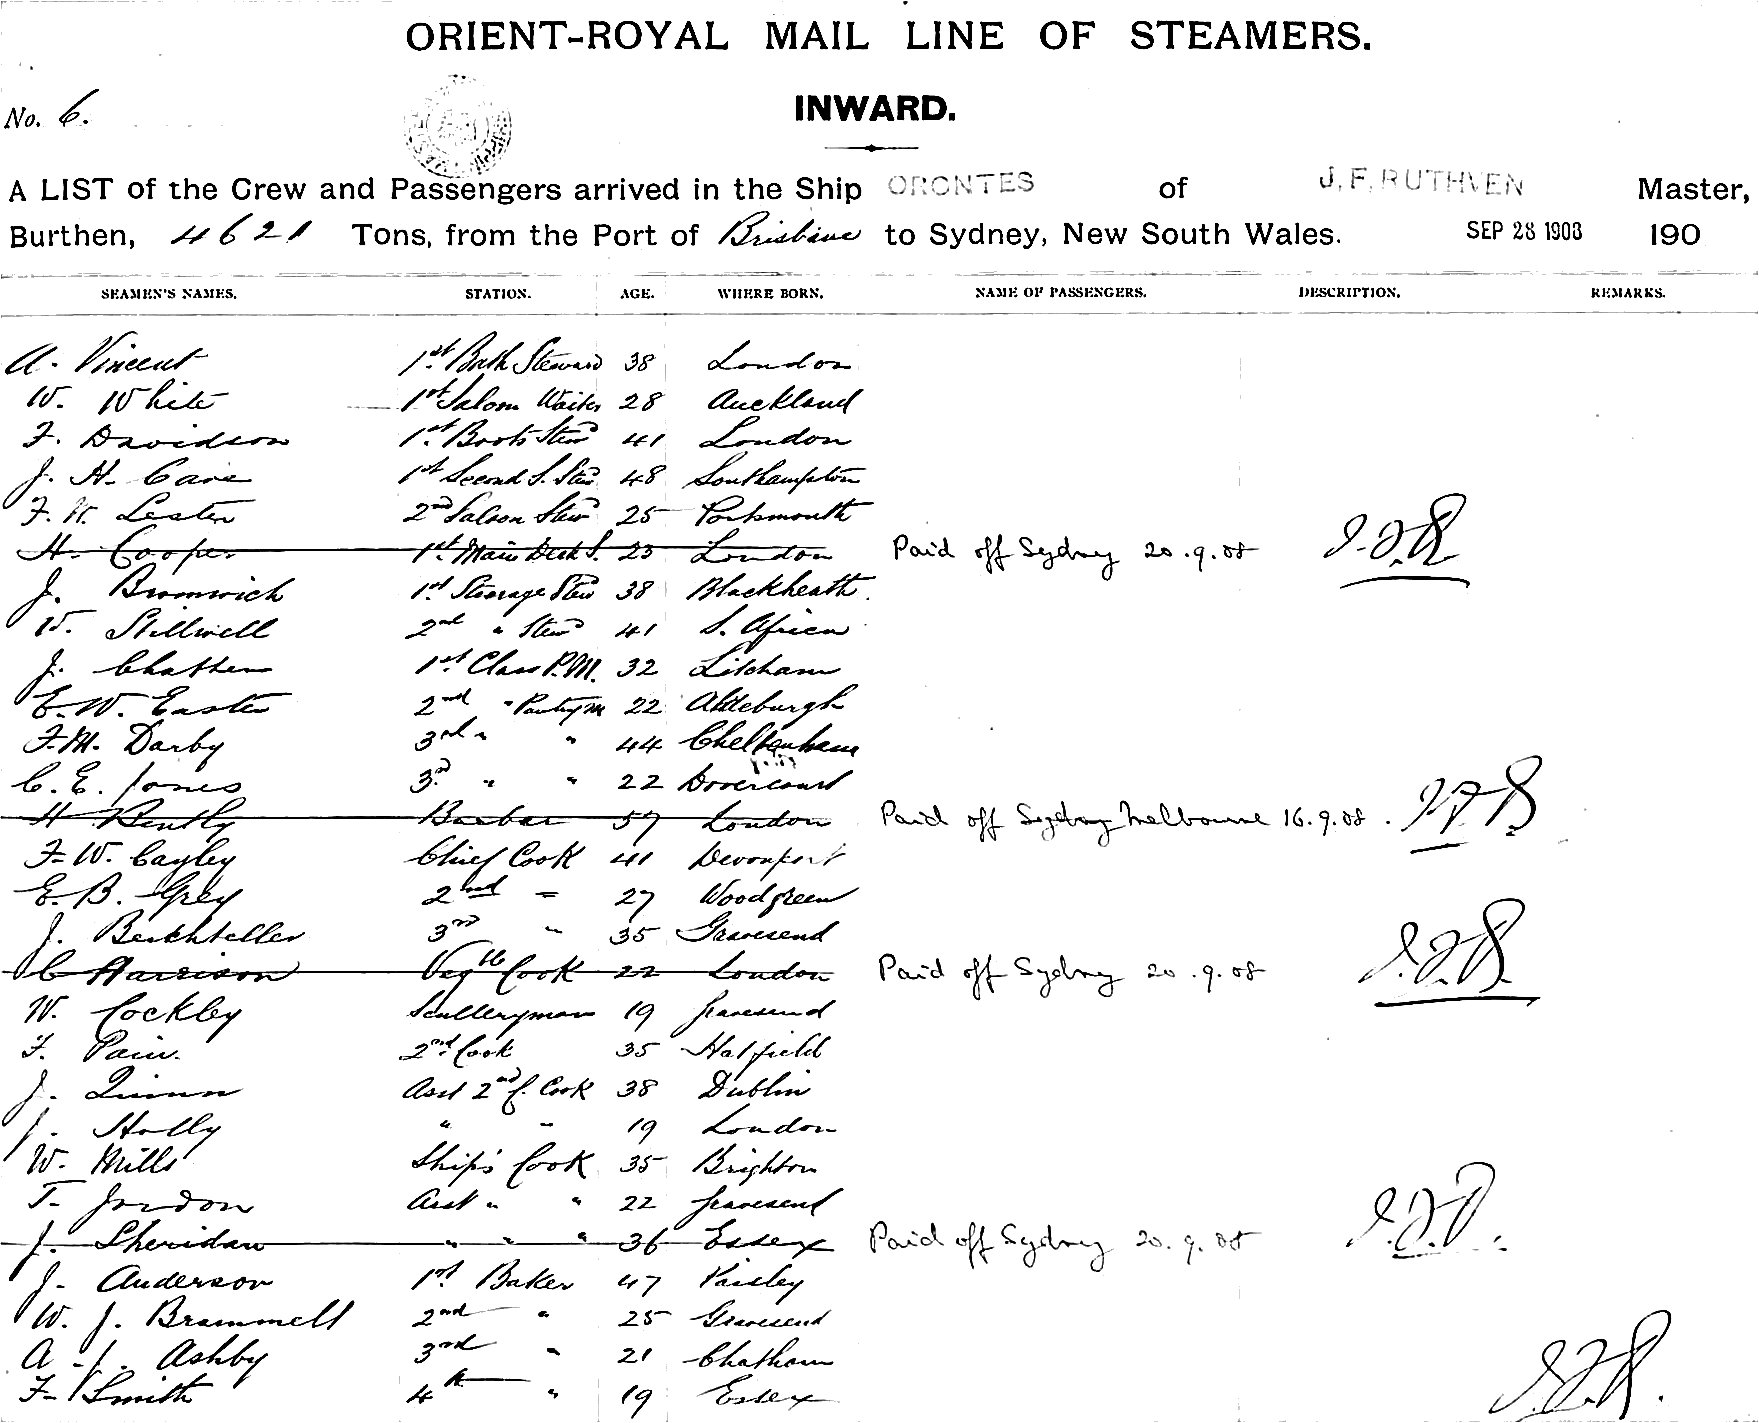 ORIENT-ROYAL MAIL LINE OF STEAMERS.
INWARD.
No. 6.
A LIST of the Crew and Passengers arrived in the Ship ORONTES of J. F. RUTHVEN Master,
Burthen, 4621 Tons, from the Port of Brisbane to Sydney, New South Wales. SEP 28 1908 190
SEAMEN'S NAMES. STATION. AGE. WHERE BORN. NAME OF PASSENGERS. DESCRIPTION. REMARKS.
A. Vincent 1st Bath Steward 38 London
W. White 1st Saloon Waiter 28 Auckland
F. Davidson 1st Boots Stewd 41 London
J. H. Cave 1st Second S. Stewd 48 Southampton
F. W. Lester 2nd Saloon Stewd 25 Portsmouth
H. Cooper 1st Main Deck S. 23 London Paid off Sydney 20.9.08 J.F.R
J. Bromwich 1st Steerage Stewd 38 Blackheath.
W. Stillwell 2nd " Stewd 41 S. Africa
J. Chatten 1st Class P.M. 32 Litcham
E. W. Easter 2nd " Pantrym 22 Aldeburgh
F. M. Darby 3rd " " 44 Cheltenham
C. E. Jones 3rd " " 22 Dovercourt
H Bently Barber 57 London Paid off Sydney Melbourne 16.9.08. J.F.R
F. W. Cayley Chief Cook 41 Devonport
E. B. Grey 2nd = 27 Woodgreen
J. 3rd " 35 Gravesend
C Harrison Vegtb Cook 22 London Paid off Sydney 20.9.08 J.F.R.
W. Cockley Sculleryman 19 Gravesend
F. Pain. 2nd Cook 35 Hatfield
J. Quinn Asst 2nd C. Cook 38 Dublin
J. Holly " " 19 London
W. Mills Ship's Cook 35 Brighton
T. Jordon Asst " " 22 Gravesend
J. Sheridan " " " 36 Essex Paid off Sydney 20.9.08 J.F.R.
J. Anderson 1st Baker 47 Paisley
W. J. Brammell 2nd " 25 Gravesend
A. J. Ashby 3rd " 21 Chatham
F. Smith 4th " 19 Essex J.F.R.